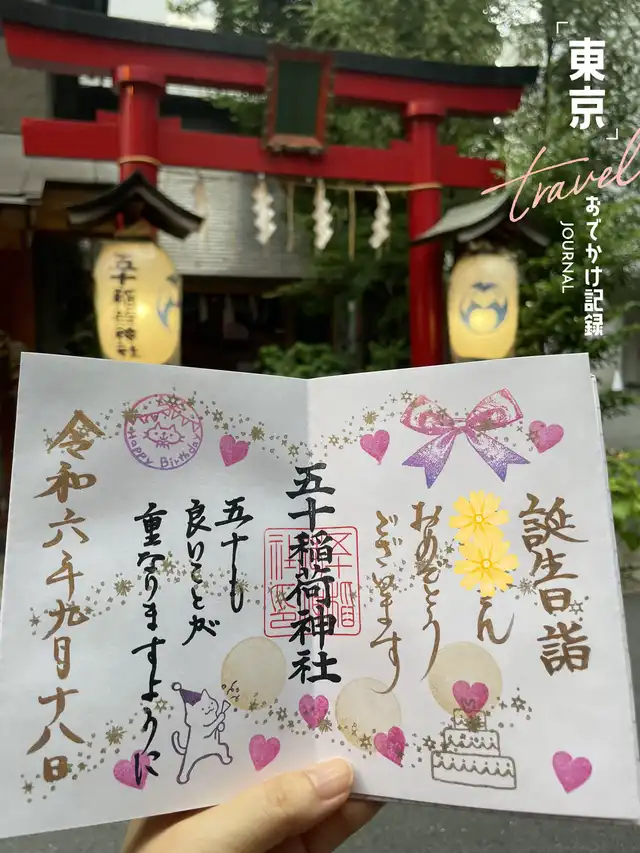 「東京」
travel
おでかけ記録
JOURNAL
五十稲荷神社
誕生日詣
ん
おめでとう
ございます
五十稲荷神社
五十も
良いことが
重なりますように
令和六年九月十八日
Happy Birthday